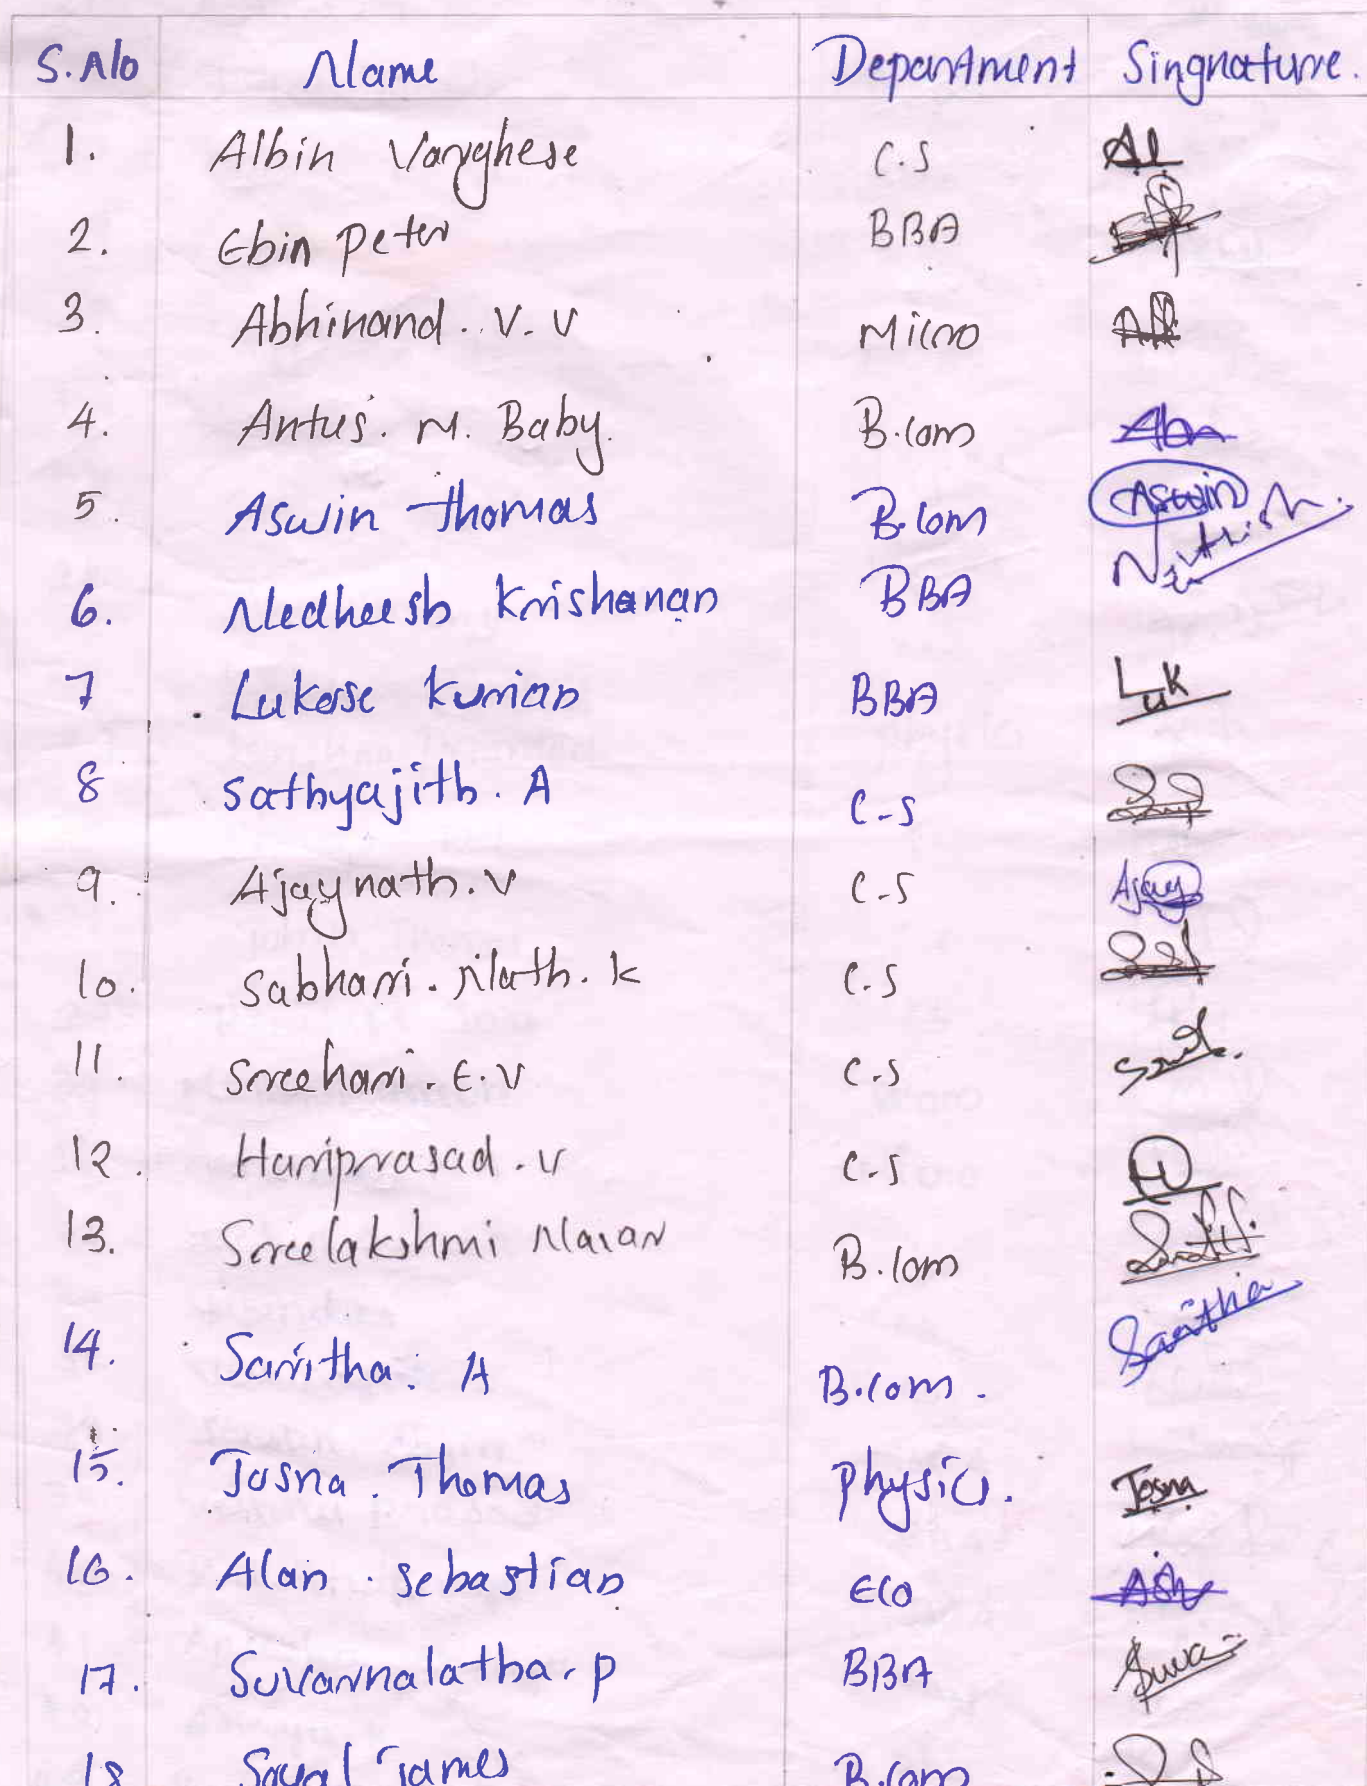 S.No Name Department Singnature.
1. Albin Varghese C.S Al
2. Ebin Peter BBA
3. Abhinand. V. V Micro
4. Antus. M. Baby. B.Com
5. Aswin Thomas B.Com Aswin
6. Nedheesh Krishanan BBA Nithish.
7 Lukose Kurian BBA Luk
8 Sathyajith. A C-S
9. Ajaynath. V C-S Ajay
10. Sabhari. Nath. K C.S
11. Sreehari. E. V C.S
12. Hariprasad. V C.S
13. Sreelakshmi B.Com
14. Saritha. A B.Com. Saritha
15. Josna. Thomas Physics. Josna
16. Alan. Sebastian ECO
17. Suvarnalatha. P BBA Suva
18 James B.Com